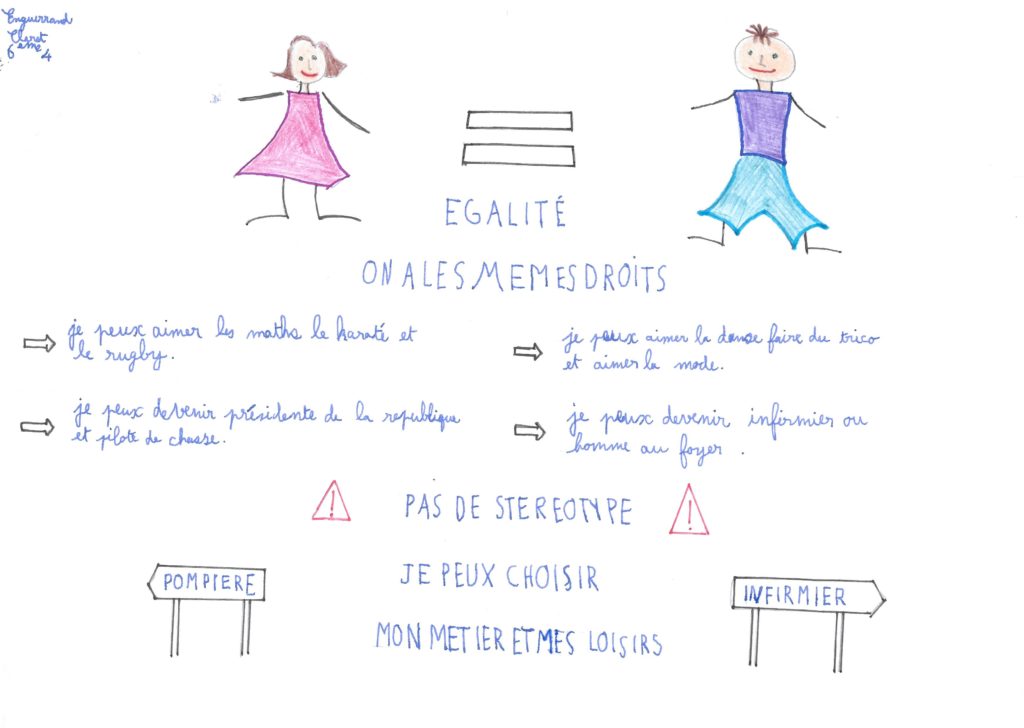 Enguerrand
Claret
6ème 4
EGALITÉ
ON A LES MEMES DROITS
je peux aimer les maths le karaté et
le rugby.
je peux aimer la danse faire du trico
et aimer la mode.
je peux devenir présidente de la republique
et pilote de chasse.
je peux devenir infirmier ou
homme au foyer .
! PAS DE STEREOTYPE !
JE PEUX CHOISIR
POMPIERE
INFIRMIER
MON METIER ET MES LOISIRS